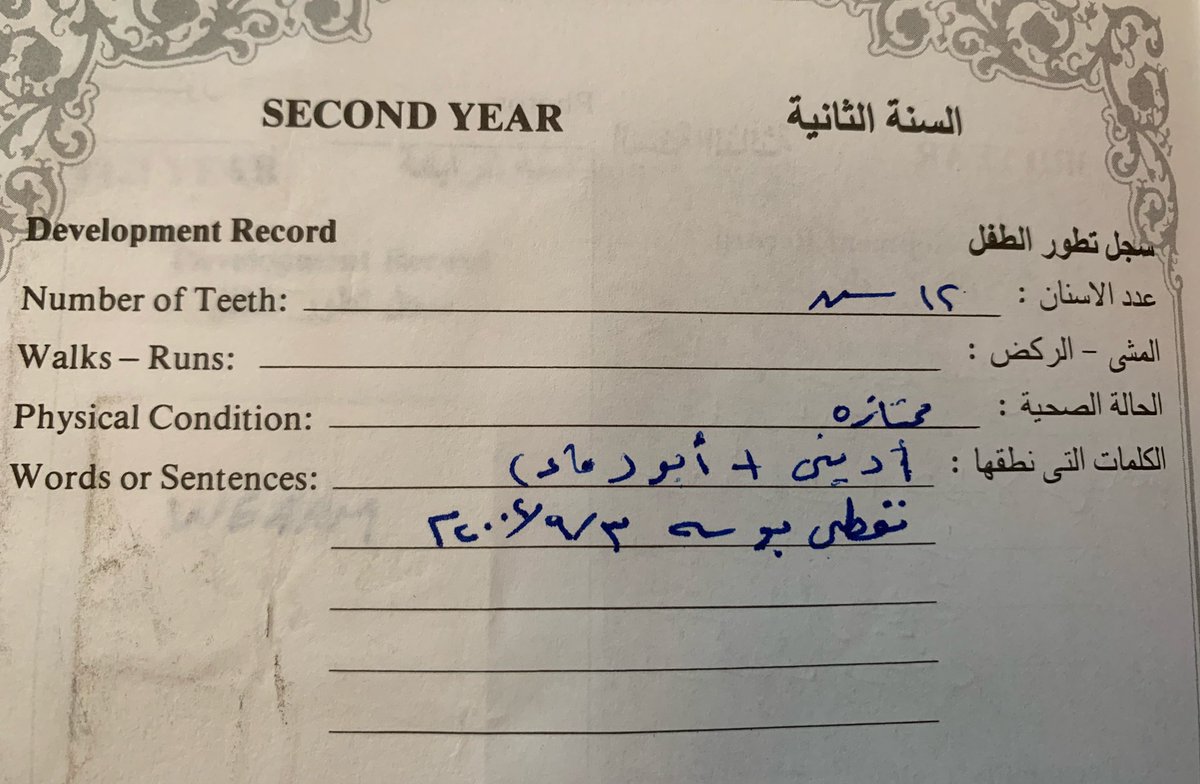 SECOND YEAR السنة الثانية
Development Record سجل تطور الطفل
Number of Teeth: ١٢ سن عدد الاسنان :
Walks – Runs: المشى – الركض :
Physical Condition: ممتازه الحالة الصحية :
Words or Sentences: أدينى + أبو الكلمات التى نطقها :
تعطى بوسه ٣/٩/